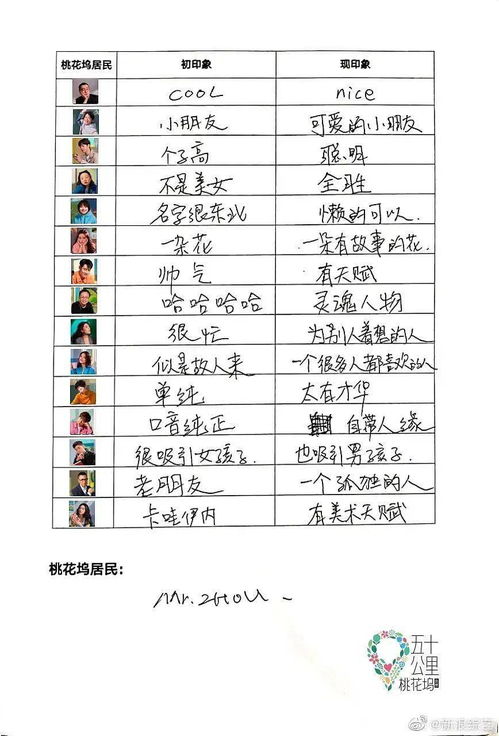 桃花坞居民 初印象 现印象
COOL nice
小朋友 可爱的小朋友
个子高 聪明
不是美女 全胜
名字很东北 懒的可以.
一朵花 一朵有故事的花.
帅气 有天赋
哈哈哈哈 灵魂人物
很忙 为别人着想的人
似是故人来 一个很多人都喜欢的人
单纯 太有才华
口音纯正 自带人缘
很吸引女孩子. 也吸引男孩子.
老朋友 一个孤独的人
卡哇伊内 有美术天赋
桃花坞居民：
Mr. zhou
五十
公里
桃花坞
@新浪综艺